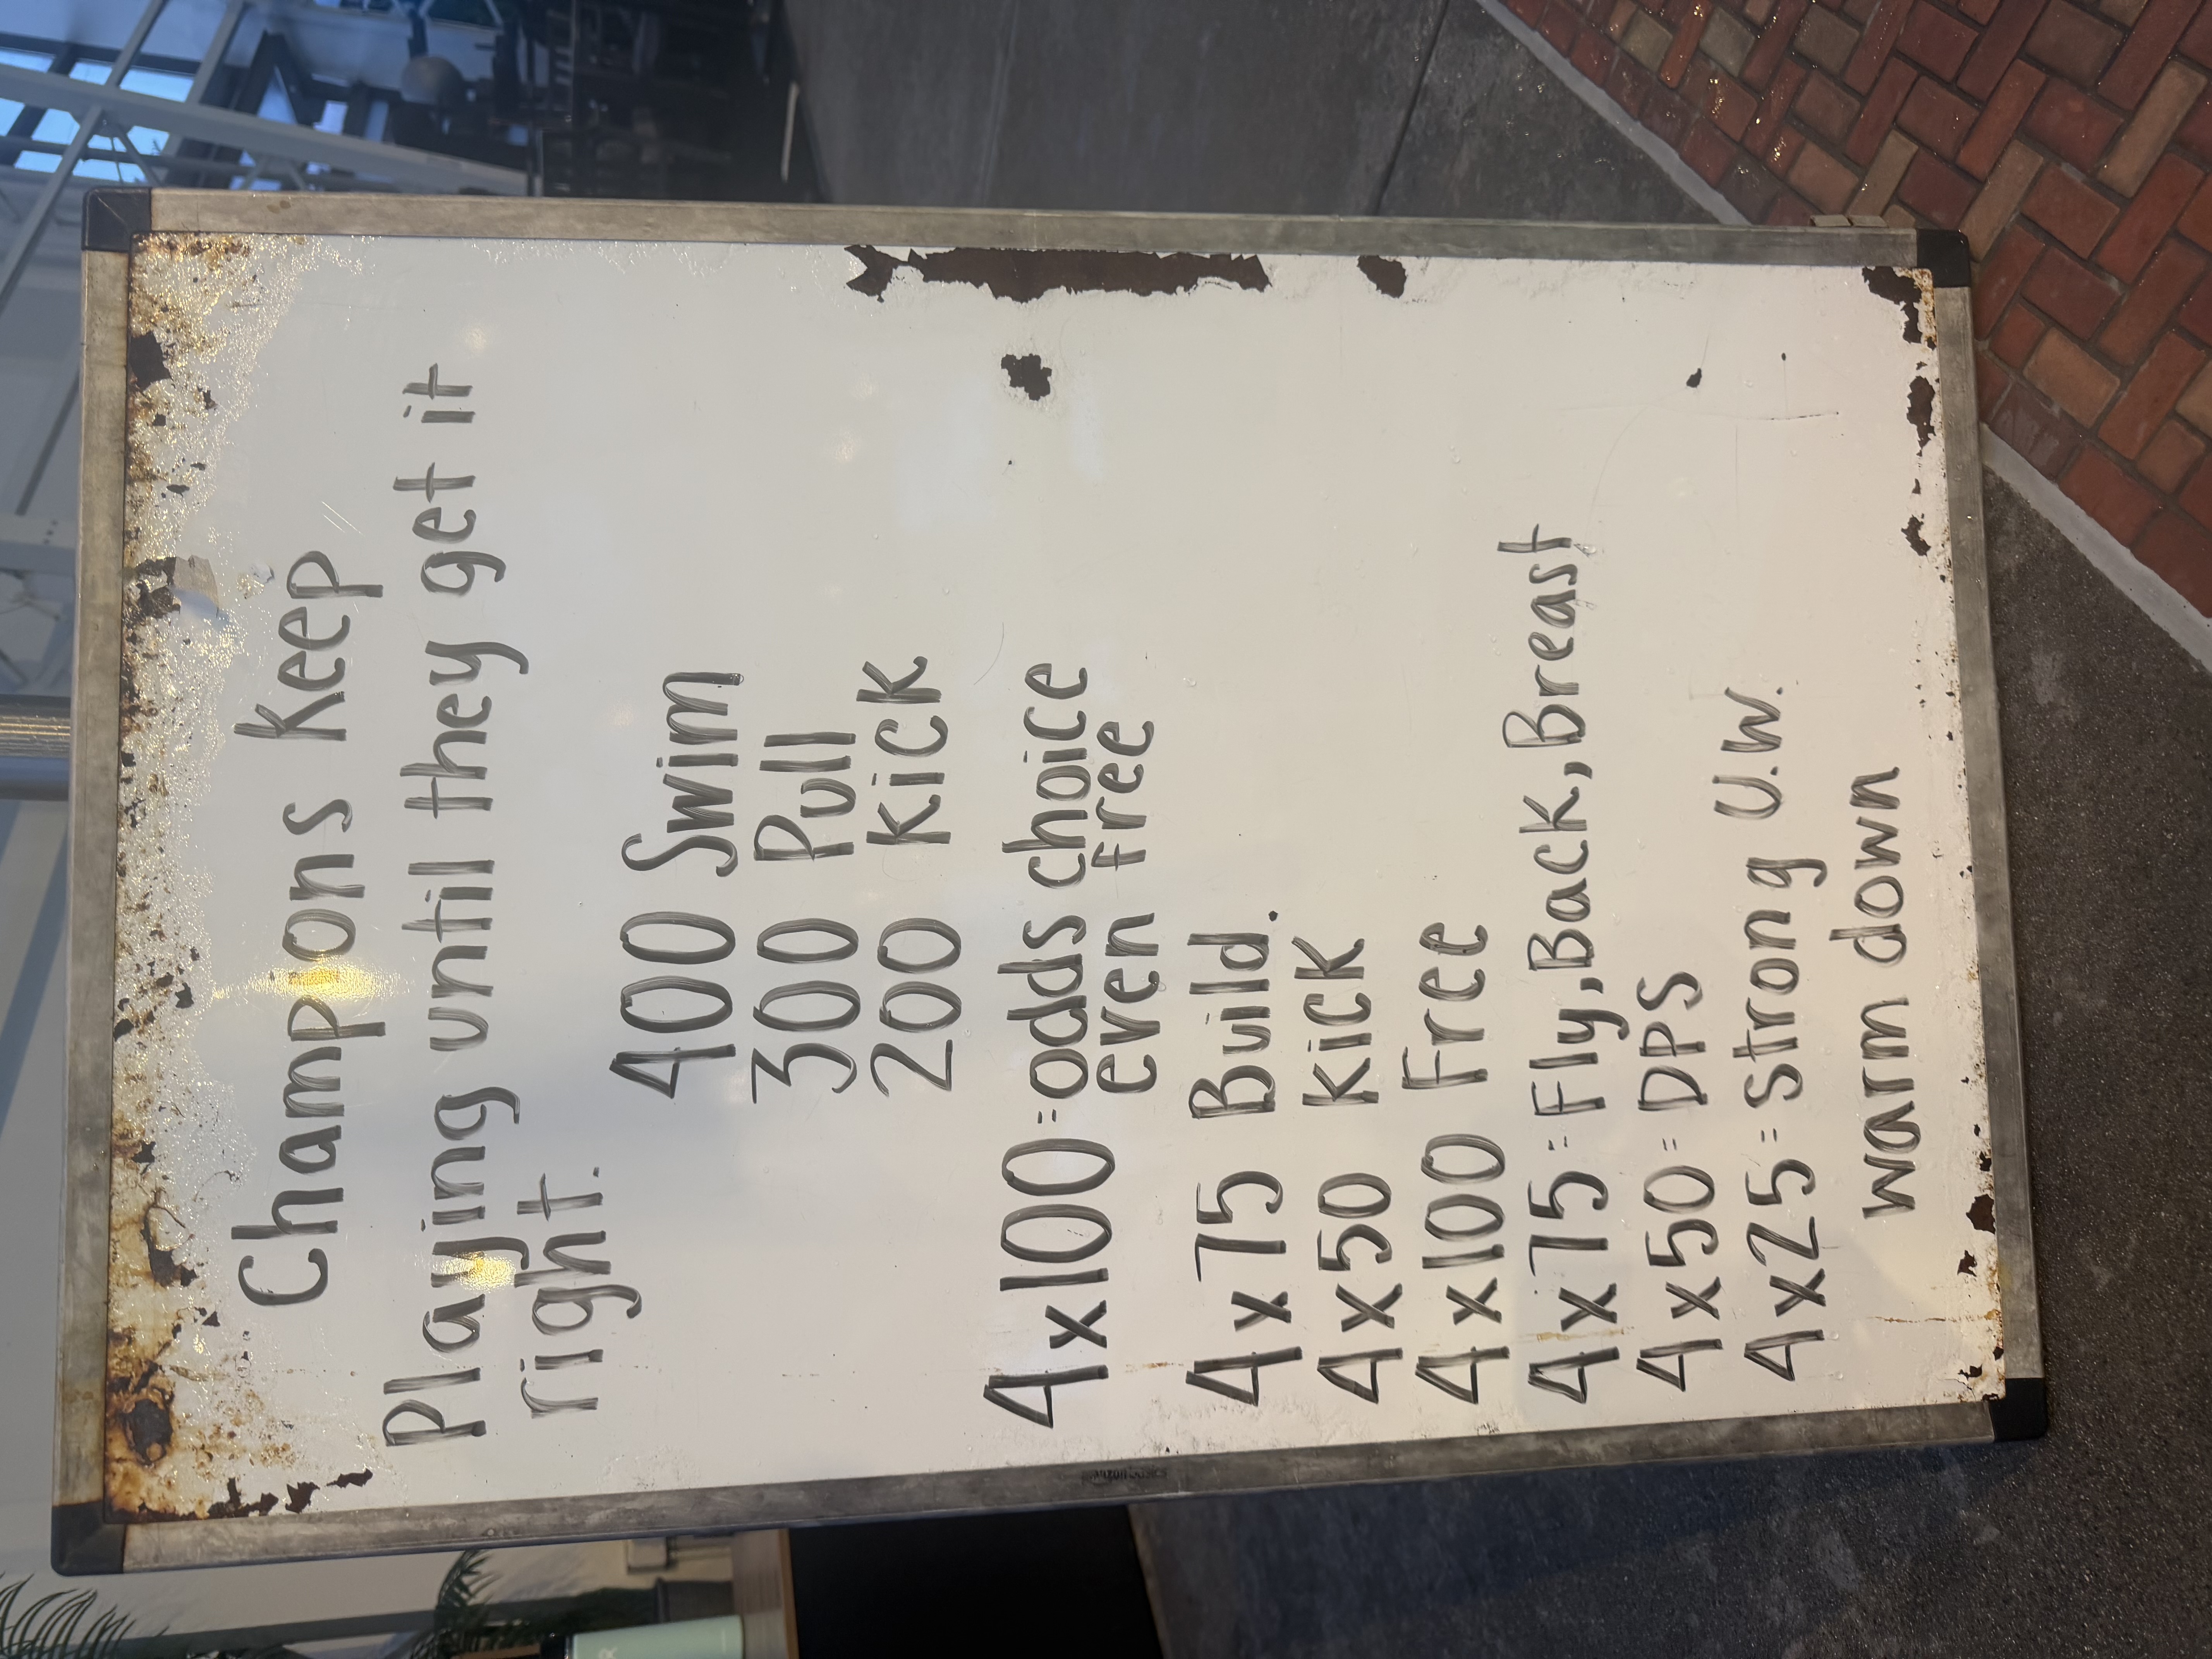 Champions Keep
Playing until they get it
right.
400 Swim
300 Pull
200 Kick
4x100 = odds choice
even free
4x75 Build.
4x50 Kick
4x100 Free
4x75 = Fly, Back, Breast
4x50 = DPS
4x25 = Strong U.W.
warm down